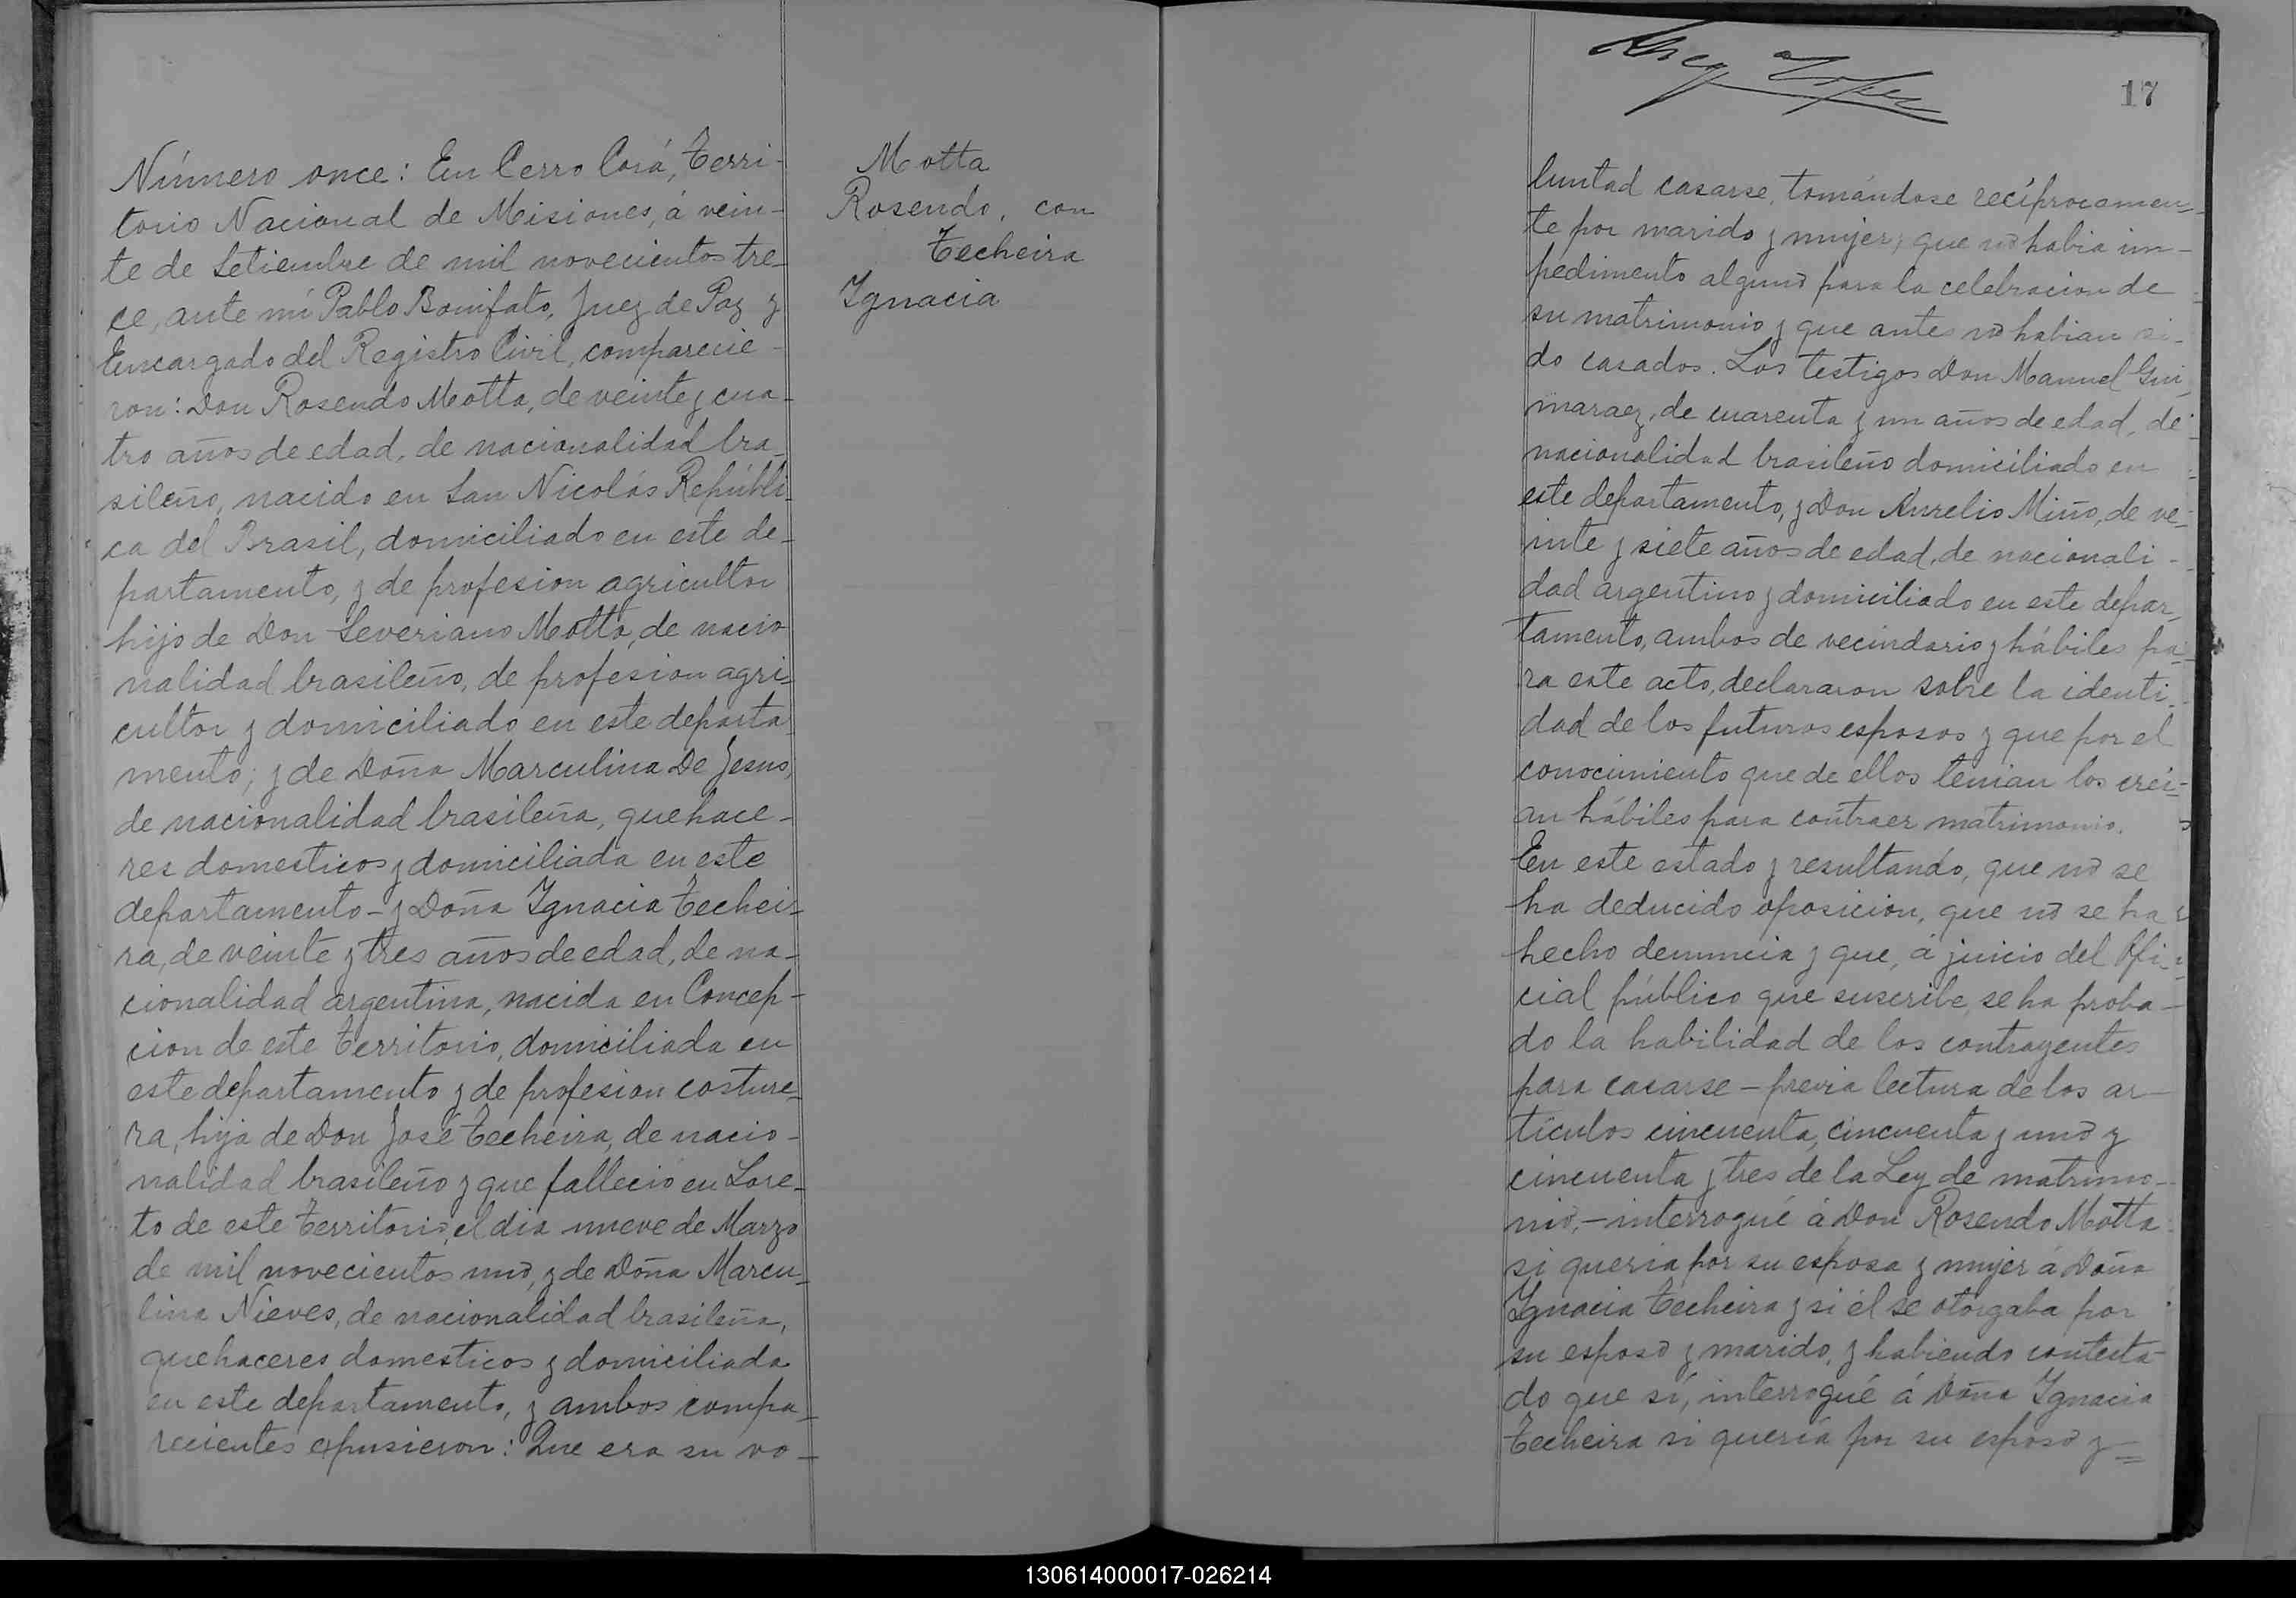 Número once: En Cerro Corá, Terri-
torio Nacional de Misiones, á vein-
te de Setiembre de mil novecientos tre-
ce, ante mí Pablo Bonifato, Juez de Paz y
Encargado del Registro Civil, comparecie-
ron: Don Rosendo Motta, de veinte y cua-
tro años de edad, de nacionalidad bra-
sileño, nacido en San Nicolás Repúbli-
ca del Brasil, domiciliado en este de-
partamento, y de profesion agricultor
hijo de Don Severiano Motta, de nacio
nalidad brasileño, de profesion agri-
cultor y domiciliado en este departa
mento; y de Doña Marculina De Jesus,
de nacionalidad brasileña, quehace-
res domesticos y domiciliada en este
departamento - y Doña Ignacia Techei-
ra, de veinte y tres años de edad, de na-
cionalidad argentina, nacida en Concep-
cion de este Territorio, domiciliada en
este departamento y de profesion costure-
ra, hija de Don José Techeira, de nacio-
nalidad brasileño y que fallecio en Lore-
to de este Territorio, el dia nueve de Marzo
de mil novecientos uno, y de Doña Marcu-
lina Nieves, de nacionalidad brasileña,
quehaceres domesticos y domiciliada
en este departamento, y ambos compa-
recientes expusieron: Que era su vo-
Motta
Rosendo, con
Techeira
Ignacia
17
luntad casarse, tomándose recíprocamen-
te por marido y mujer; que no habia im-
pedimento alguno para la celebracion de
su matrimonio y que antes no habian si-
do casados. Los testigos Don Manuel Gui
maraez, de cuarenta y un años de edad, de
nacionalidad brasileño domiciliado en
este departamento, y Don Aurelio Miño, de ve-
inte y siete años de edad, de nacionali-
dad argentino y domiciliado en este depar-
tamento, ambos de vecindario y hábiles pa-
ra este acto, declararon sobre la identi-
dad de los futuros esposos y que por el
conocimiento que de ellos tenian los creí-
an hábiles para contraer matrimonio.
En este estado y resultando, que no se
ha deducido oposicion, que no se ha
hecho denuncia y que, á juicio del Ofi-
cial público que suscribe, se ha proba-
do la habilidad de los contrayentes
para casarse - previa lectura de los ar-
tículos cincuenta, cincuenta y uno y
cincuenta y tres de la Ley de matrimo-
nio, - interrogué á Don Rosendo Motta
si queria por su esposa y mujer á Doña
Ignacia Techeira y si él se otorgaba por
su esposo y marido, y habiendo contesta-
do que sí, interrogué á Doña Ignacia
Techeira si quería por su esposo y
130614000017-026214